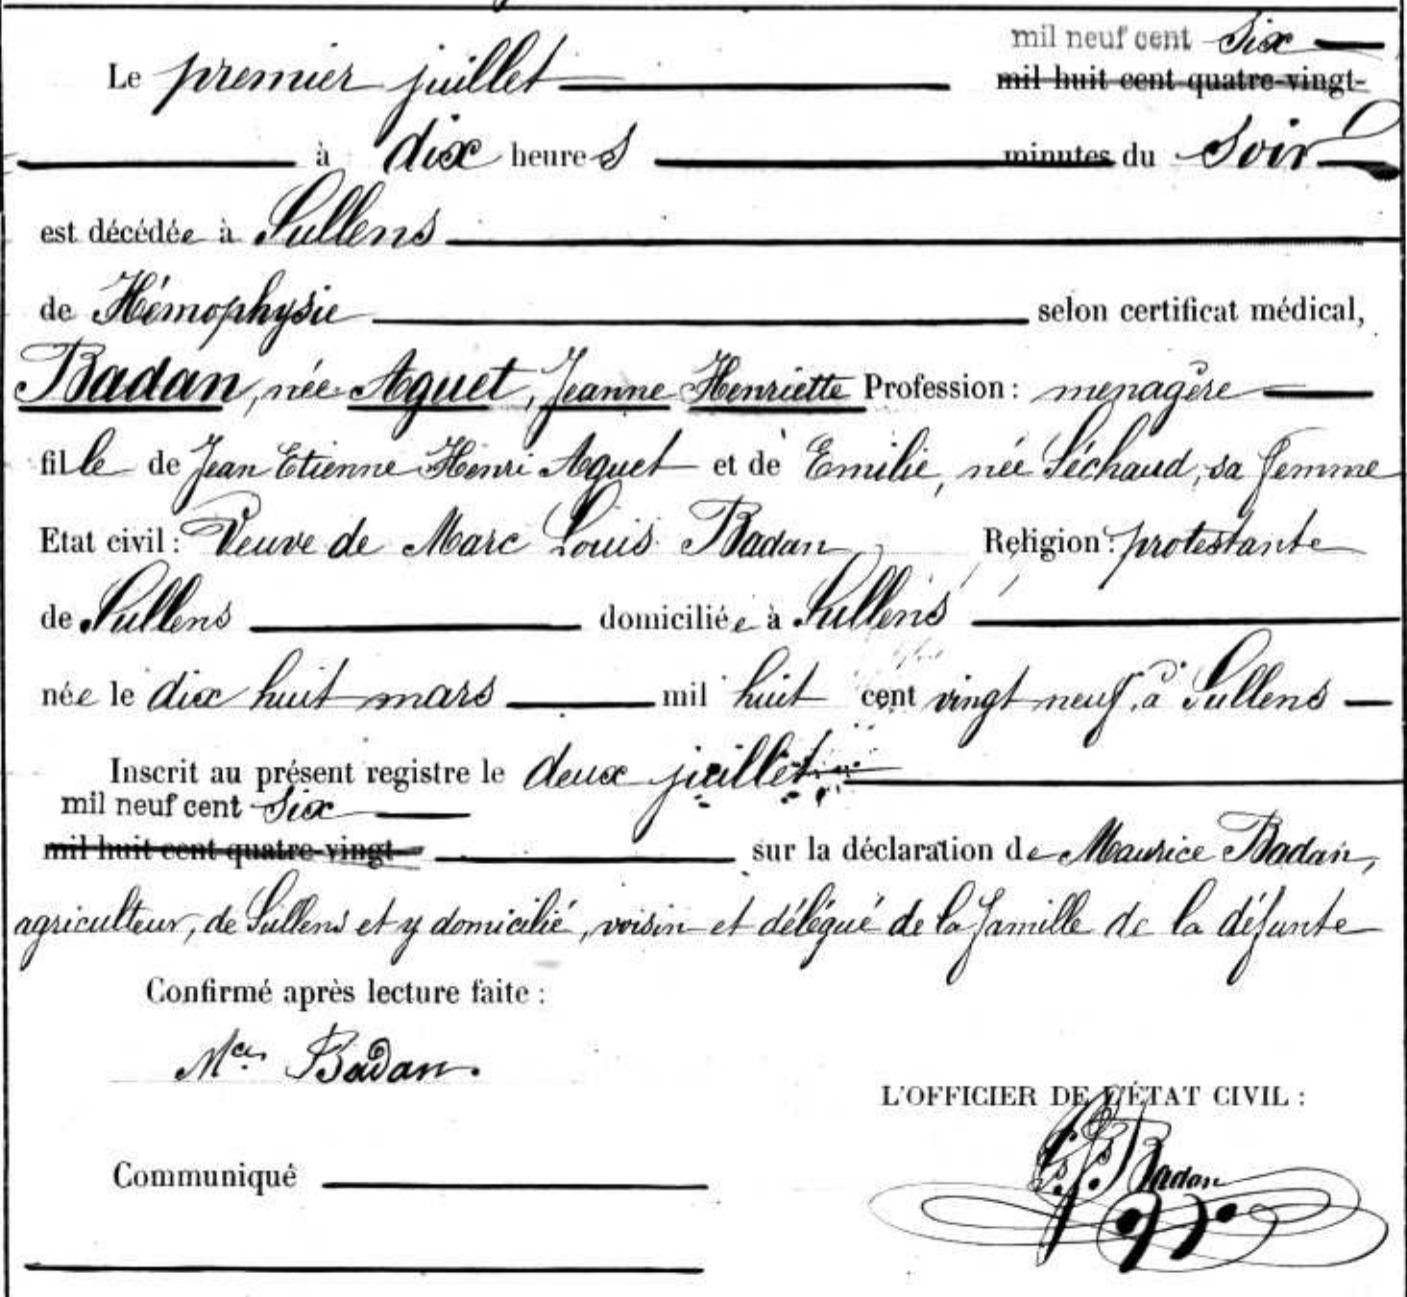 mil neuf cent six
Le premier juillet mil huit cent quatre-vingt-
à dix heures minutes du soir
est décédée à Sullens
de Hémophysie selon certificat médical,
Badan, née Aguet, Jeanne Henriette Profession : menagère
fille de Jean Etienne Henri Aguet et de Emilie, née Séchaud, sa femme
Etat civil : Veuve de Marc Louis Badan, Religion : protestante
de Sullens domiciliée à Sullens
née le dix huit mars mil huit cent vingt neuf, à Sullens
Inscrit au présent registre le deux juillet
mil neuf cent six
mil huit cent quatre-vingt sur la déclaration de Maurice Badan,
agriculteur, de Sullens et y domicilié, voisin et délégué de la famille de la défunte
Confirmé après lecture faite :
Mce. Badan.
L'OFFICIER DE L'ÉTAT CIVIL :
Badan
Communiqué